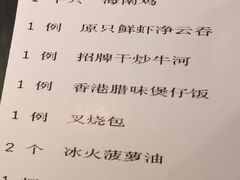 海南鸡
1 例 原只鲜虾净云吞
1 例 招牌干炒牛河
1 例 香港腊味煲仔饭
1 例 叉烧包
2 个 冰火菠萝油